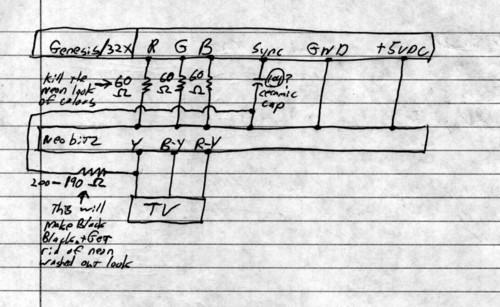 Genesis/32X R G B Sync GND +5VDC
Kill the
neon look
of colors
60 Ω 60 Ω 60 Ω
ceramic
cap
Neobitz
Y B-Y R-Y
200-190 Ω
TV
This will
Make Black
Black + Get
rid of neon
washed out look